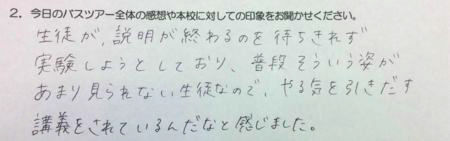 2. 今日のバスツアー全体の感想や本校に対しての印象をお聞かせください。
生徒が、説明が終わるのを待ちきれず
実験しようとしており、普段そういう姿が
あまり見られない生徒なので、やる気を引きだす
講義をされているんだなと感じました。